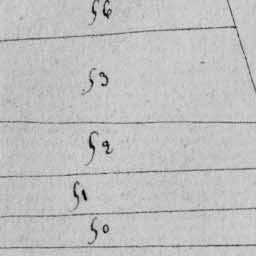 56
53
52
51
50